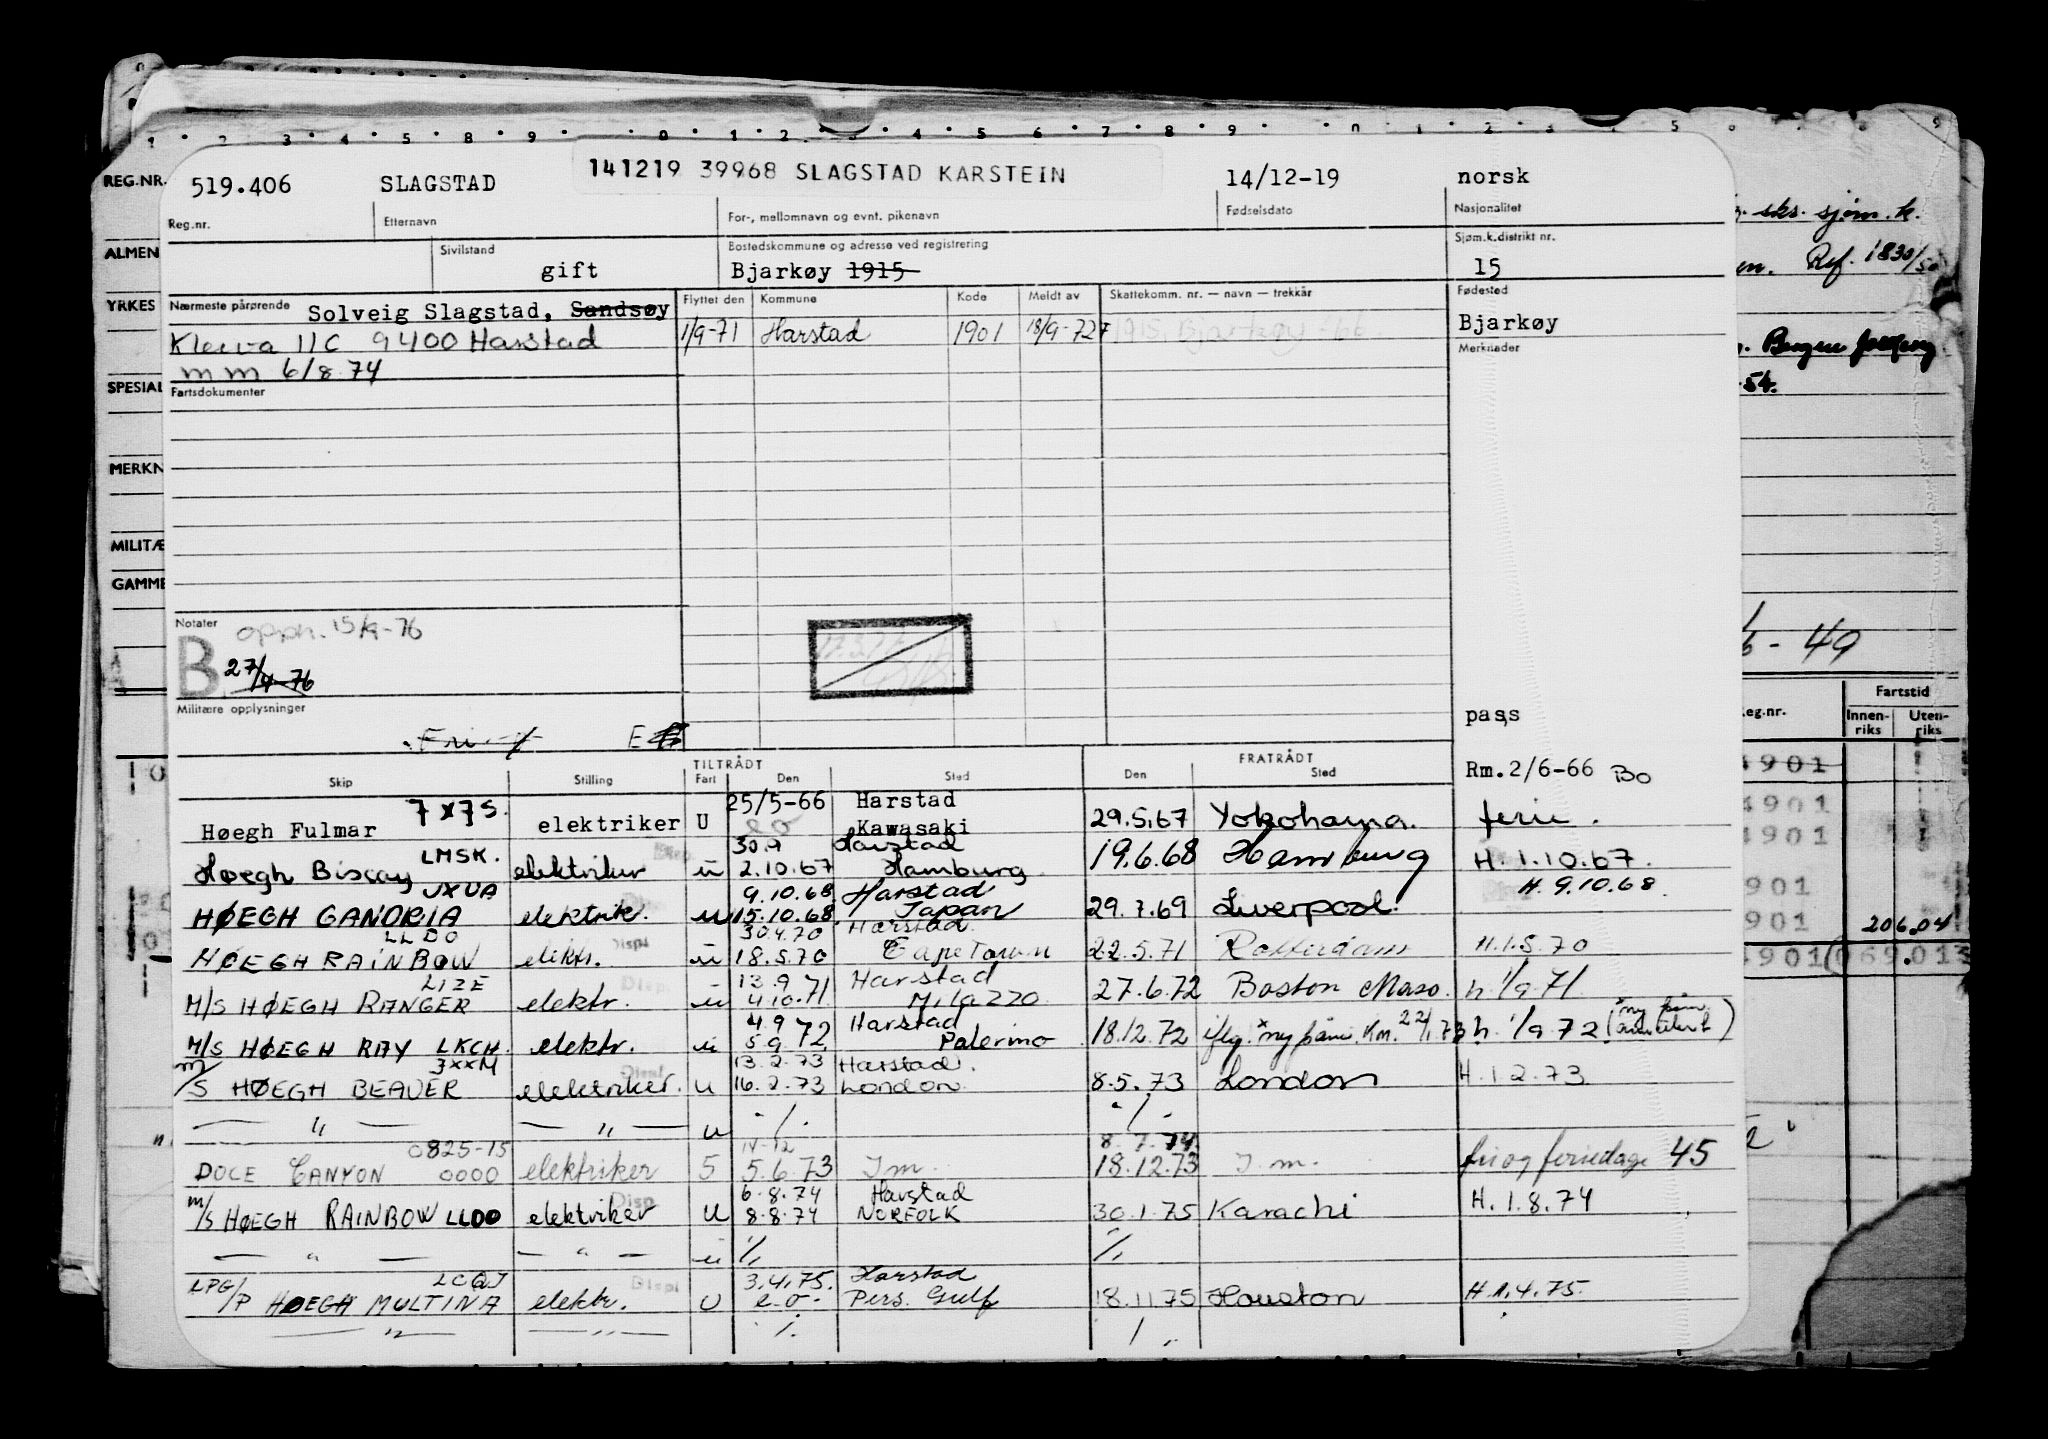 519.406 SLAGSTAD 141219 39968 SLAGSTAD KARSTEIN 14/12-19 norsk
Reg.nr. Etternavn For-, mellomnavn og evnt. pikenavn Fødselsdato Nasjonalitet
Sivilstand Bostedskommune og adresse ved registrering Sjøm.k.distrikt nr.
gift Bjarkøy 1915 15
Nærmeste pårørende Solveig Slagstad, Sandsøy Flyttet den Kommune Kode Meldt av Skattekomm. nr. — navn — trekkår Fødested
11C 9400 Harstad 1/9-71 Harstad 1901 18/9-72 1915 Bjarkøy -66 Bjarkøy
mm 6/8.74 Merknader
Fartsdokumenter
Notater
opph. 15/9-76
B 27/9-76
Militære opplysninger
pass
Fri
TILTRÅDT FRATRÅDT
Skip Stilling Fart Den Sted Den Sted Rm.2/6-66 BO
7x7S. 25/5-66 Harstad
Høegh Fulmar elektriker U e o Kawasaki 29.5.67 Yokohama. ferie.
LMSK. 30.9 Harstad
Høegh Biscay elektriker u 2.10.67 Hamburg 19.6.68 Hamburg H.1.10.67.
JXUA 9.10.68 Harstad H.9.10.68.
HØEGH GANDRIA elektrik. u 15.10.68 Japan 29.7.69 Liverpool.
LLDO 30.4.70 Harstad
HØEGH RAINBOW elektr. u 18.5.70 Cape Town 22.5.71 Rotterdam H.1.5.70
LIZE 13.9.71 Harstad
M/S HØEGH RANGER elektr. u 4.10.71 Milazzo 27.6.72 Boston Mass. h. 1/9.71
4.9.72 Harstad
M/S HØEGH RAY LKCH. elektr. u 5.9.72 Palermo 18.12.72 h. 1/9.72
JXXM 13.2.73 Harstad.
M/S HØEGH BEAVER elektriker. u 16.2.73 London. 8.5.73 London H.1.2.73
— " — — " — u ./. ./.
0825-15 14-12 8.7.74
DOCE CANYON 0000 elektriker 5 5.6.73 I m. 18.12.73 I. m. fri og feriedage 45
6.8.74 Harstad
m/s HØEGH RAINBOW LLDO elektriker U 8.8.74 NORFOLK 30.1.75 Karachi H.1.8.74
— " — — " — u ./. ./.
LCQJ 3.4.75. Harstad
LPG/P HØEGH MULTINA elektr. U e.o. Pers. Gulf 18.11.75 Houston H.1.4.75.
— " — — " — ./. ./.
REG.NR.
ALMEN
YRKES
SPESIAL
MERKN
MILITÆ
GAMME
sks. sjøm. k.
Ref. 1830/50
-54.
- 49
Fartstid
eg.nr. Innen-riks Uten-riks
4901
4901
4901
901
901 206.04
4901 069.013